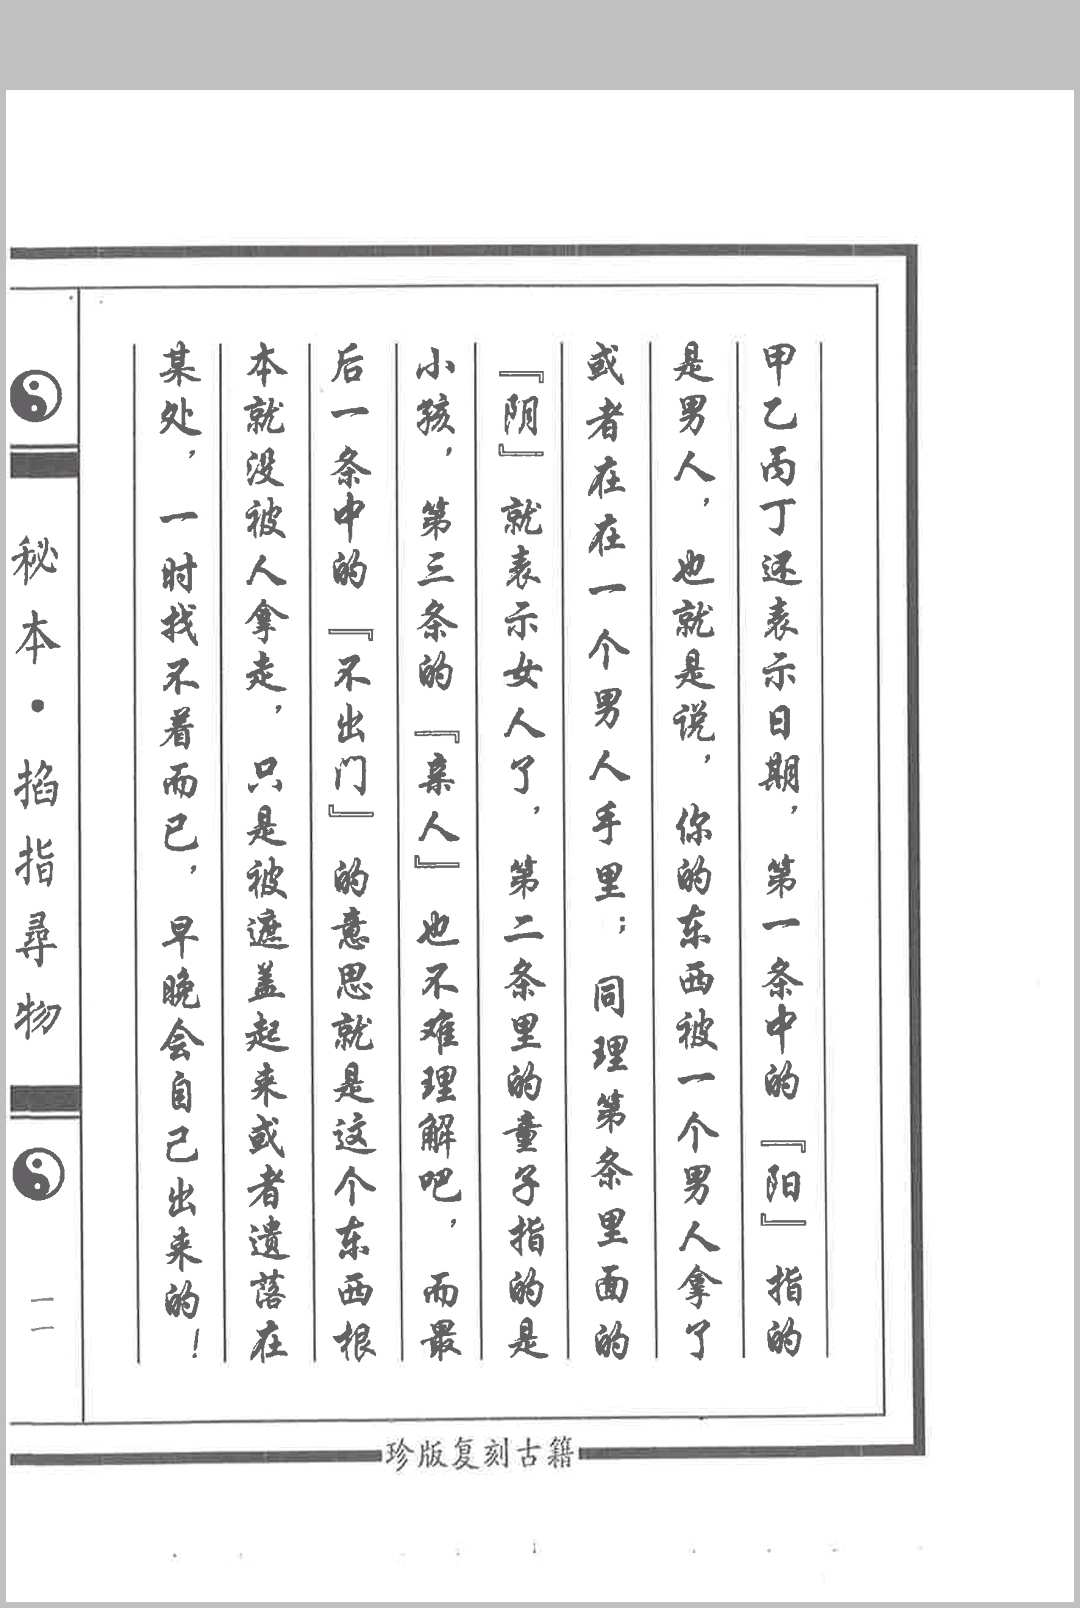 甲乙丙丁还表示日期，第一条中的『阳』指的
是男人，也就是说，你的东西被一个男人拿了
或者在在一个男人手里；同理第条里面的
『阴』就表示女人了，第二条里的童子指的是
小孩，第三条的『亲人』也不难理解吧，而最
后一条中的『不出门』的意思就是这个东西根
本就没被人拿走，只是被遮盖起来或者遗落在
某处，一时找不着而已，早晚会自己出来的！
秘本·掐指尋物
一一
珍版复刻古籍